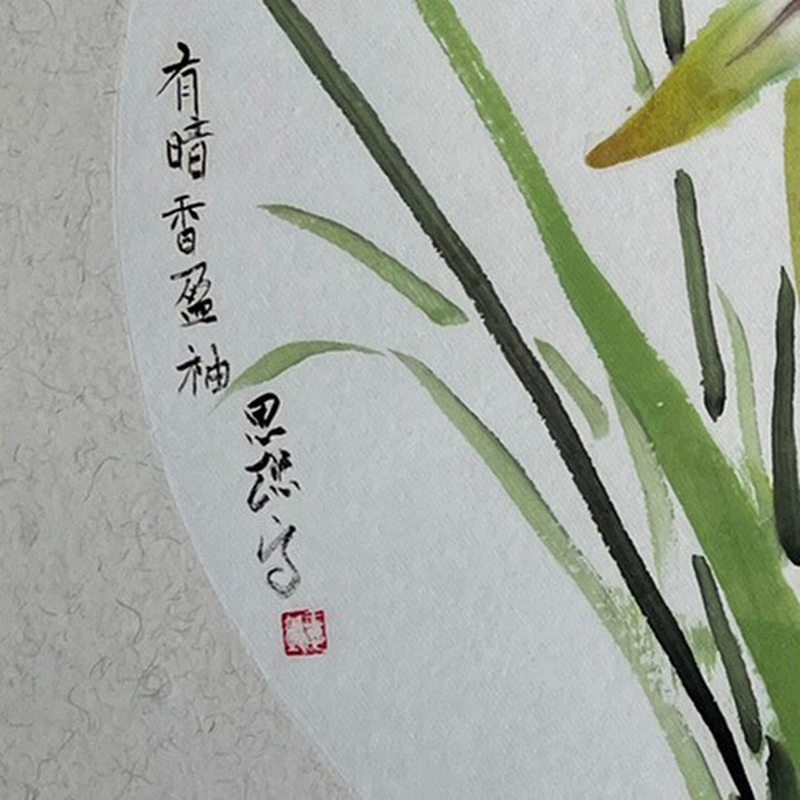 有暗香盈袖
思
写